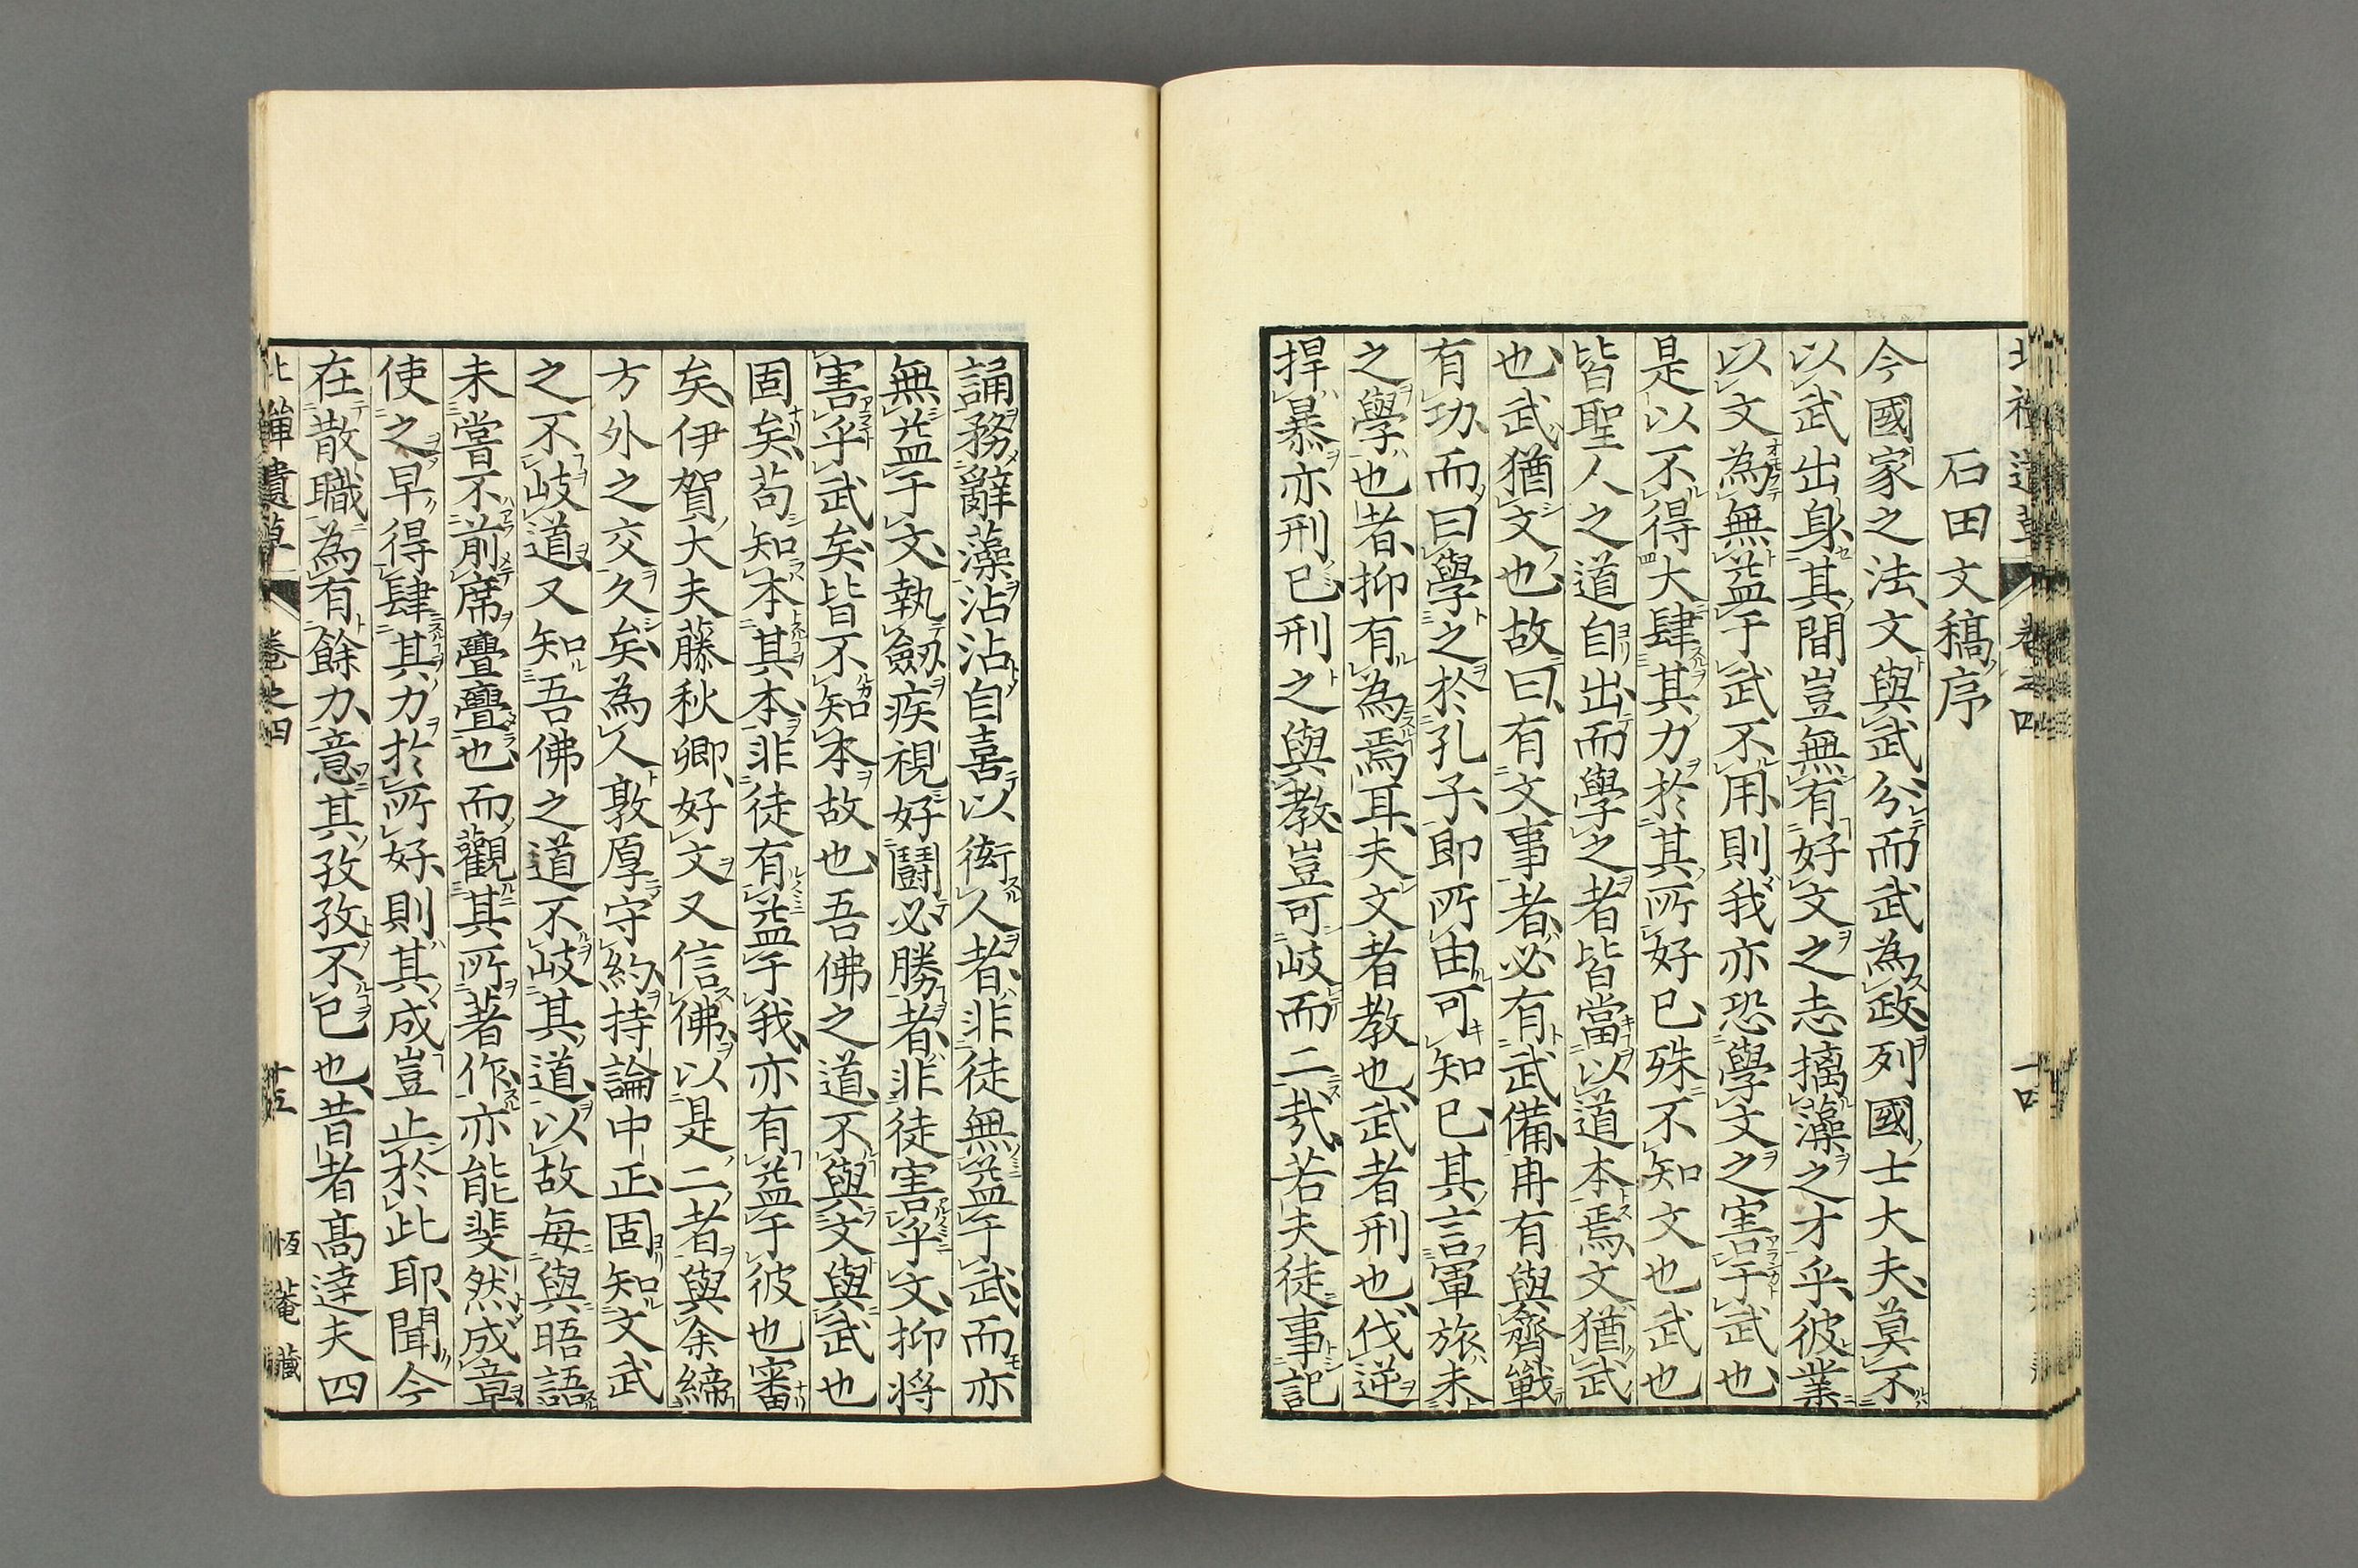 石田文稿序
今國家之法文與武分而武為政列國士大夫莫不
以武出身其間豈無有好文之志摛藻之才乎彼業
以文為無益于武不用則我亦恐學文之害于武也
是以不得大肆其力於其所好已殊不知文也武也
皆聖人之道自出而學之者皆當以道本焉文猶武
也武猶文也故曰有文事者必有武備冉有與齊戰
有功而曰學之於孔子即所由可知已其言軍旅未
之學也者抑有為焉耳夫文者教也武者刑也伐逆
捍暴亦刑已刑之與教豈可岐而二哉若夫徒事記
誦務辭藻沾沾自喜以衒人者非徒無益于武而亦
無益于文執劔疾視好鬪必勝者非徒害乎文抑将
害乎武矣皆不知本故也吾佛之道不與文與武也
固矣苟知本其本非徒有益于我亦有益于彼也審
矣伊賀大夫藤秋卿好文又信佛以是二者與余締
方外之交久矣為人敦厚守約持論中正固知文武
之不岐道又知吾佛之道不岐其道以故每與晤語
未嘗不前席亹亹也而觀其所著作亦能斐然成章
使之早得肆其力於所好則其成豈止於此耶聞今
在散職為有餘力意其孜孜不已也昔者高達夫四
北禪遺草 卷之四 十五 恆菴藏